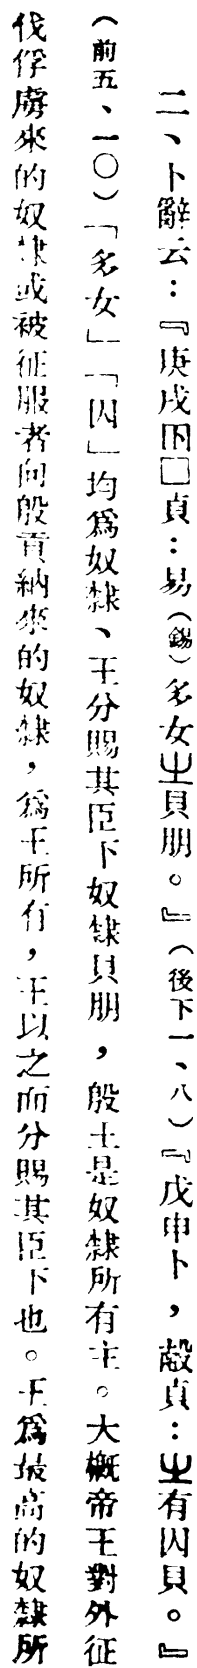 二、卜辭云：『庚戌囝□貞：易（錫）多女㞢貝朋。』（後下一、八）『戊申卜，㱿貞：㞢有囚貝。』
（前五、一〇）「多女」「囚」均爲奴隸、王分賜其臣下奴隸貝朋，殷王是奴隸所有主。大概帝王對外征
伐俘虜來的奴隸或被征服者向殷貢納來的奴隸，爲王所有，王以之而分賜其臣下也。王爲最高的奴隸所